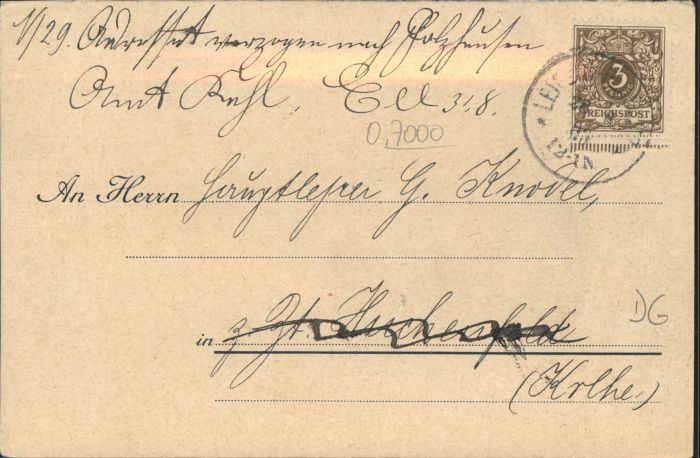 1/29. Adressat verzogen nach Holzhausen
Amt Kehl, 31.8.
0,7000
3
REICHSPOST
LEI
12-1N
An Herrn Hauptlehrer G. Knodel,
DG
in z. Zt.
(Krlhe.)